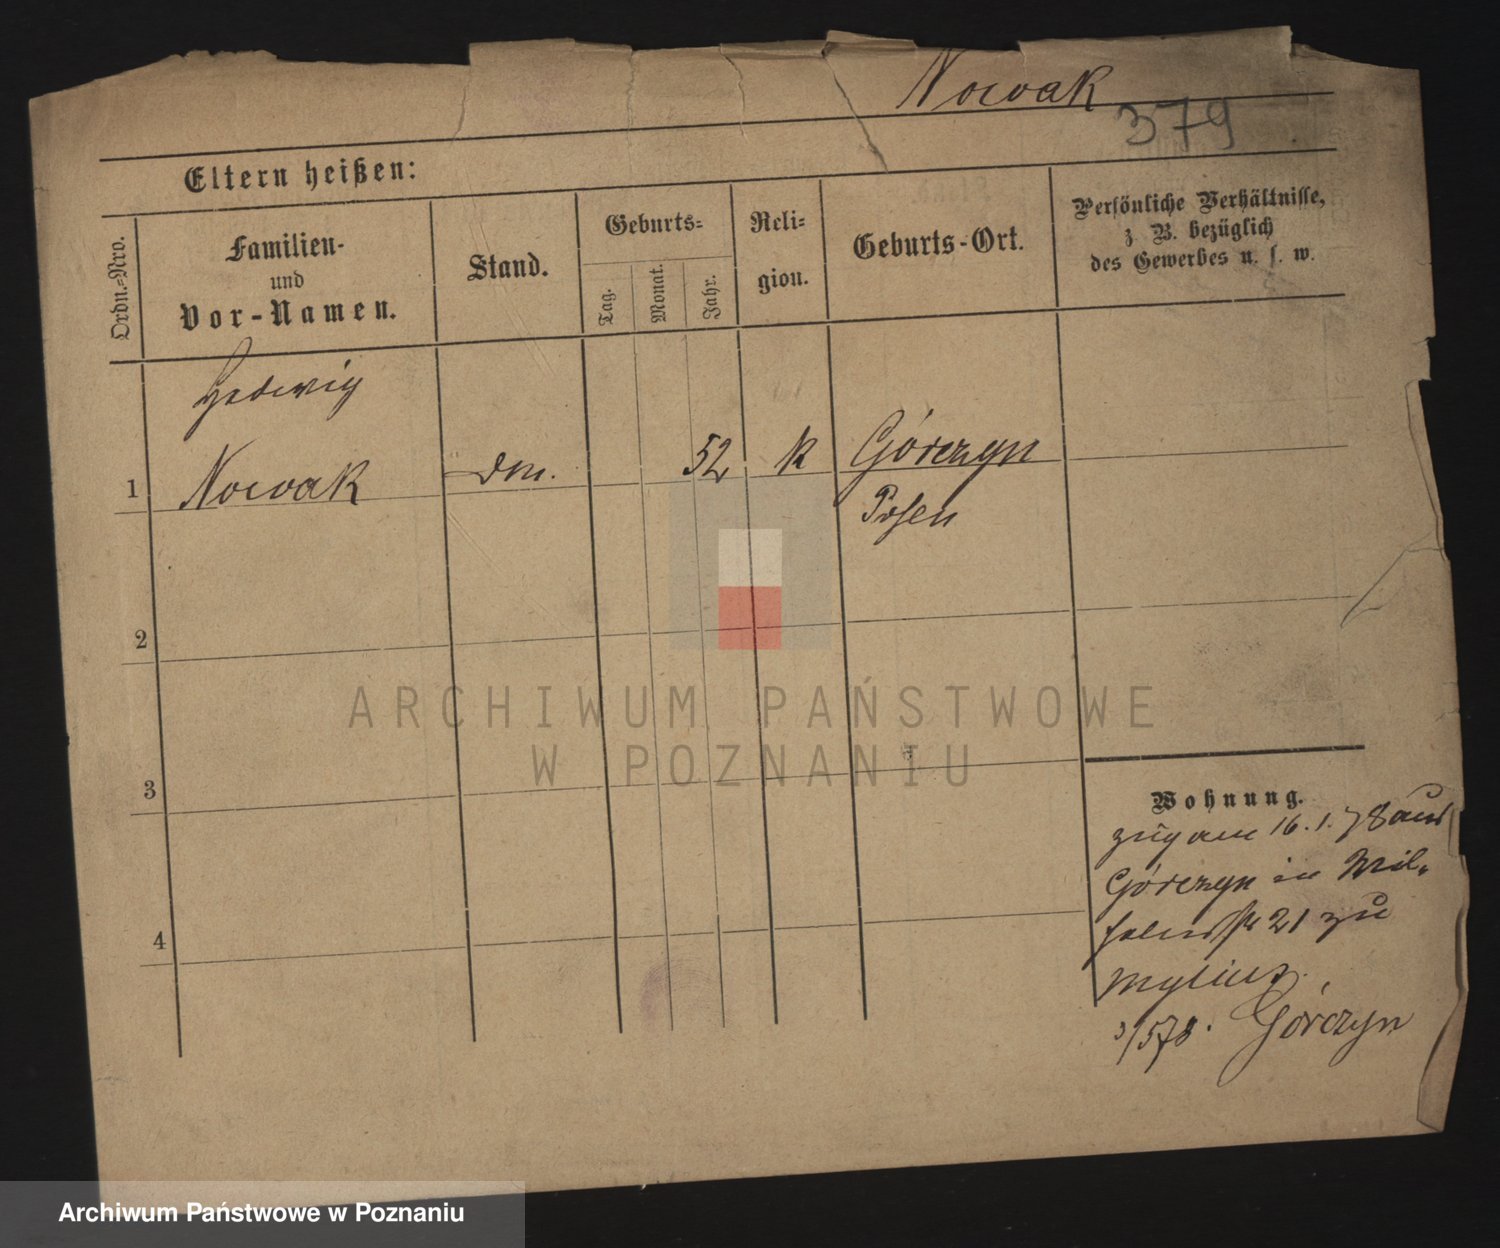 Nowak
379
Eltern heißen:
Ordn.-Nro.
Familien-
und
Vor-Namen.
Stand.
Geburts-
Tag.
Monat.
Jahr.
Reli-
gion.
Geburts-Ort.
Persönliche Verhältnisse,
z. B. bezüglich
des Gewerbes u. s. w.
Hedwig
1 Nowak dm. 52 k Górczyn
Posen
2
3
4
ARCHIWUM PAŃSTWOWE
W POZNANIU
Wohnung.
zug am 16.1.78 aus
Górczyn in Wil-
21 zu
3/578. Górczyn
Archiwum Państwowe w Poznaniu